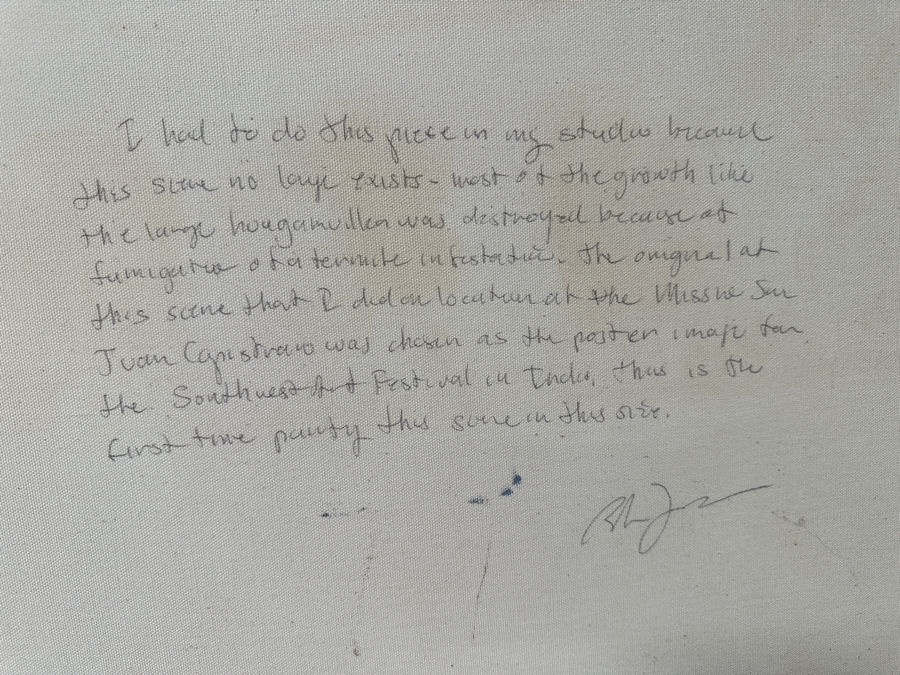 I had to do this piece in my studio because
this scene no longe exists - most of the growth like
the large bouganvillea was destroyed because of
fumigation of a termite infestation. The original of
this scene that I did on location at the Mission San
Juan Capistrano was chosen as the poster image for
the Southwest Art Festival in Indio, this is the
first time painting this scene in this size.